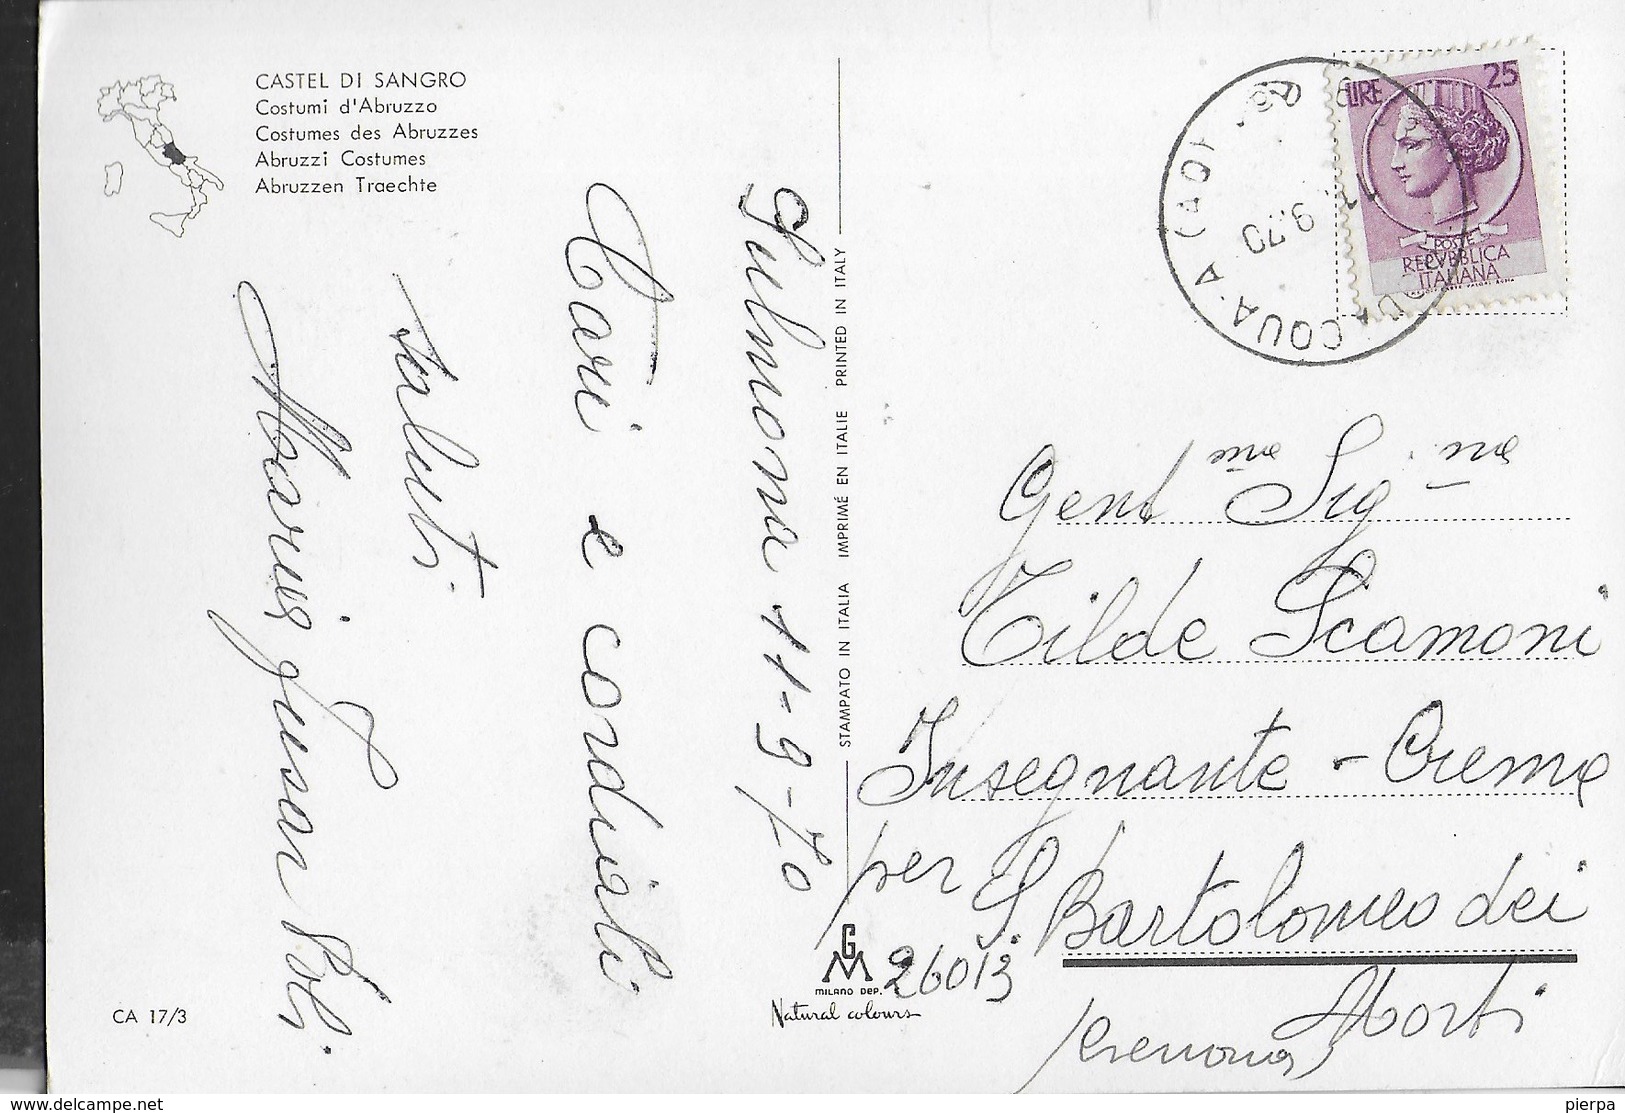 CASTEL DI SANGRO
Costumi d'Abruzzo
Costumes des Abruzzes
Abruzzi Costumes
Abruzzen Traechte
Sulmona 11-9-70
Cari e cordiali
saluti.
CA 17/3
STAMPATO IN ITALIA IMPRIMÉ EN ITALIE PRINTED IN ITALY
G
M
MILANO DEP.
Natural colours
9.70
LIRE 25
POSTE
REPVBBLICA
ITALIANA
Gent ma Sig na
Tilde Scamoni
Insegnante - Crema
per S. Bartolomeo dei
26013 Morti
(Cremona)
www.delcampe.net
pierpa